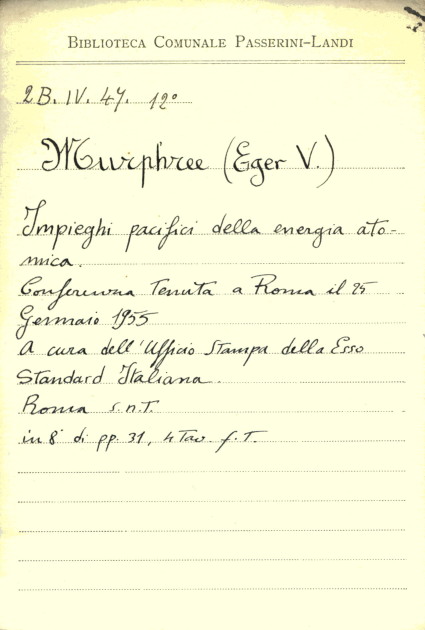 BIBLIOTECA COMUNALE PASSERINI-LANDI
2B. IV. 47. 12°
Murphree (Eger V.)
Impieghi pacifici della energia ato-
mica.
Conferenza Tenuta a Roma il 25
Gennaio 1955
A cura dell'Ufficio Stampa della Esso
Standard Italiana.
Roma s.n.T.
in 8° di pp. 31, 4 Tav. f.T.